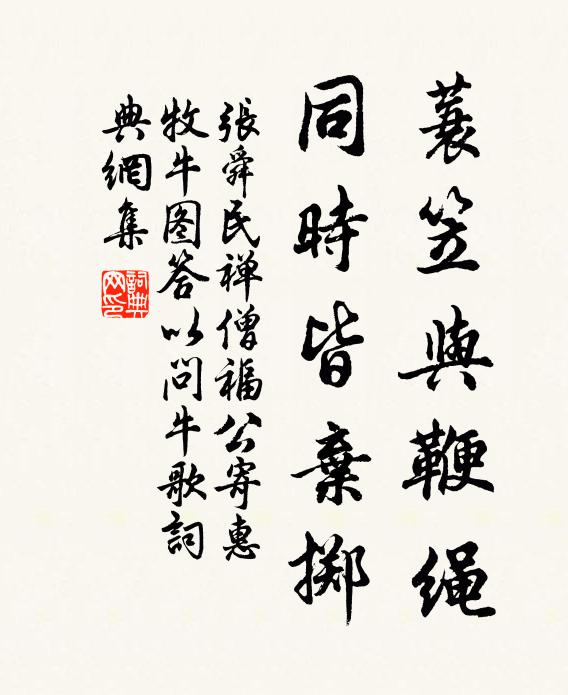 蓑笠與鞭绳
同時皆棄擲
張舜民禅僧福公寄惠
牧牛图答以问牛歌詞
典網集
詞典网印